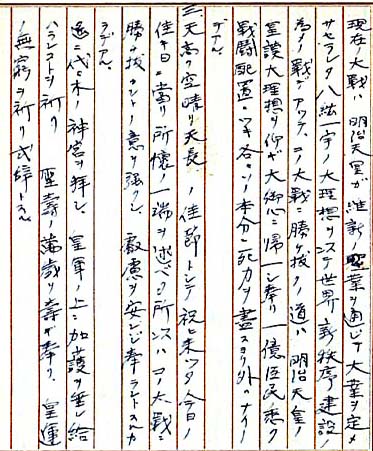 現在ノ大戦ハ 明治天皇ガ維新ノ聖業ヲ通ジテ大業ヲ定メ
サセラレタ八紘一宇ノ大理想ニシテ世界新秩序建設ノ
為ノ戦デアツテ、コノ大戦ニ勝チ抜ク道ハ 明治天皇ノ
皇謨大理想ヲ仰ギ大御心ニ帰一シ奉リ一億臣民悉ク
戦闘配置ニツキ各〻ソノ本分ニ死力ヲ盡スヨリ外ハナイノ
デアル。
三、天高ク空晴レ天長ノ佳節トシテ祝ヒ来ツタ今日ノ
佳キ日ニ當リ所懐ノ一端ヲ述ベル所以ハコノ大戦ニ
勝チ抜カントノ意ヲ強クシ 叡慮ヲ安ンジ奉ラントスルカ
ラデアル。
遥ニ代々木ノ神宮ヲ拝シ、皇軍ノ上ニ加護ヲ垂レ給
ハランコトヲ祈リ 聖壽ノ萬歳ヲ壽ギ奉リ、皇運
ノ無窮ヲ祈リ式辞トスル